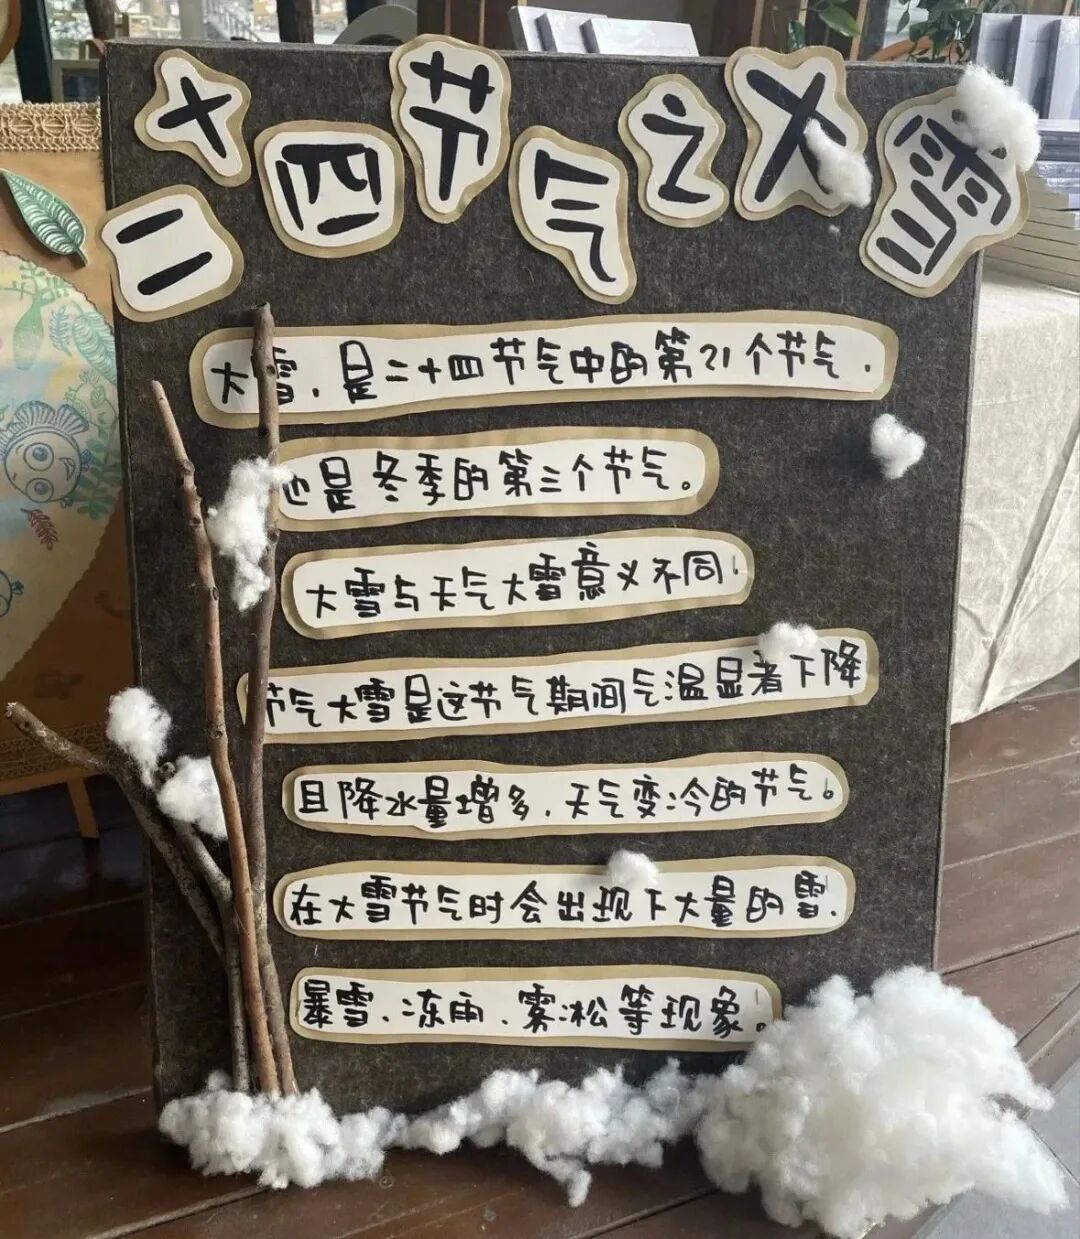 二十四节气之大雪
大雪，是二十四节气中的第21个节气，
也是冬季的第三个节气。
大雪与天气大雪意义不同！
节气大雪是这节气期间气温显著下降
且降水量增多，天气变冷的节气。
在大雪节气时会出现下大量的雪，
暴雪、冻雨、雾凇等现象。